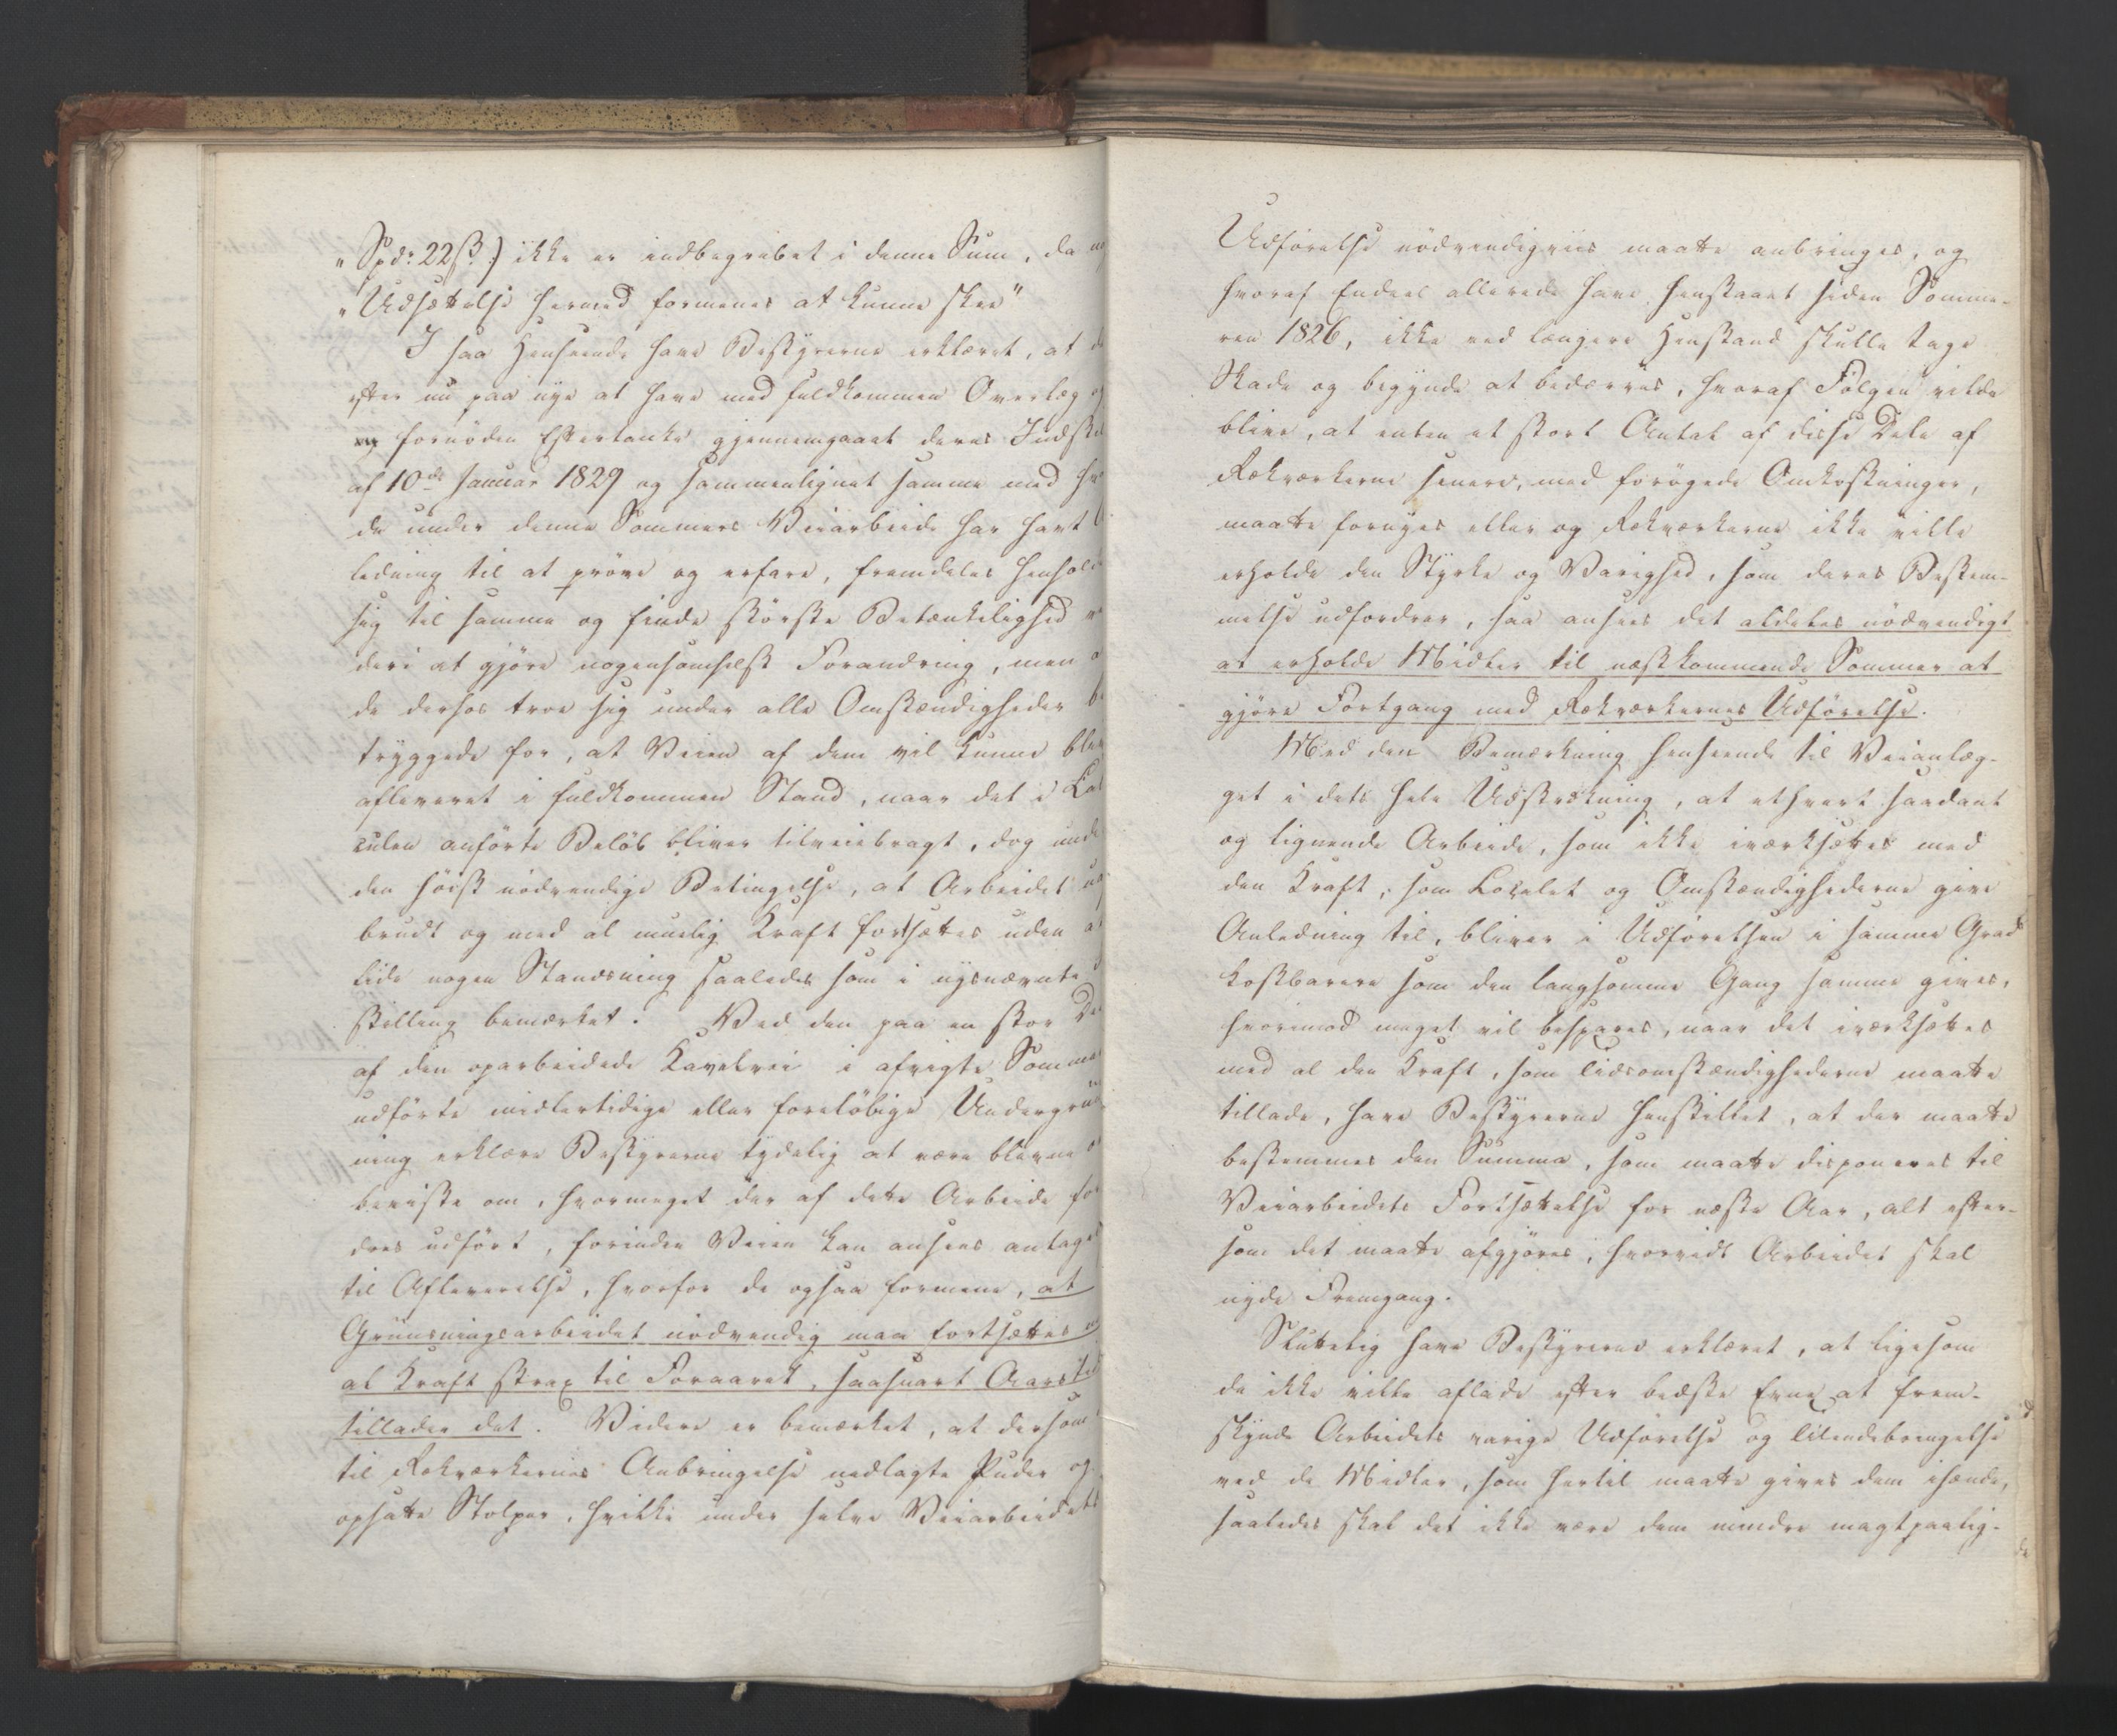 „Spdr 22 ß.) ikke er indbegrebet i denne Sum, da
„Udsættelse hermed formenes at kunne skee"
I saa Henseende have Bestyrerne erklæret, at de
efter nu paa nye at have med fuldkommen Overlæg og
fornöden Eftertanke gjennemgaaet deres Indstil
af 10de Januar 1829 og sammenlignet samme med hv
de under denne Sommers Veiarbeide har havt
ledning til at pröve og erfare, fremdeles henholde
sig til samme og finde störste Betænkelighed
deri at gjöre nogensomhelst Forandring, men
de derhos troe sig under alle Omstændigheder be
tryggede for, at Veien af dem vil kunne blive
afleveret i fuldkommen Stand, naar det i Cal
culen anförte Belöb bliver tilveiebragt, dog unde
den höist nödvendige Betingelse, at Arbeidet
brudt og med al muelig Kraft fortsættes uden at
lide nogen Standsning saaledes som i nysnævnte
stilling bemærket. Ved den paa en stor De
af den oparbeidede Kavelvei i afvigte Sommer
udförte midlertidige eller forelöbige Undergru
ning erklære Bestyrerne tydelig at være blevne
beviste om, hvormeget der af dette Arbeide for
dres udfört, forinden Veien kan ansees antagel
til Afleverelse, hvorfor de ogsaa formene, at
Gruusningsarbeidet nödvendig maa fortsættes
al Kraft strax til Foraaret, saasnart Aarstid
tillader det. Videre er bemærket, at dersom
til Rekværkernes Anbringelse nedlagte Puder og
opsatte Stolper, hvilke under selve Veiarbeidets
Udförelse nödvendigviis maatte anbringes, og
hvoraf Endeel allerede have henstaaet siden Somme-
ren 1826, ikke ved længere Henstand skulle tage
Skade og begynde at bedærves, hvoraf Fölgen vilde
blive, at enten et stort Antal af disse Dele af
Rekværkerne senere, med forögede Omkostninger,
maatte fornyes eller og Rekværkerne ikke ville
erholde den Styrke og Varighed, som deres Bestem-
melse udfordrer, saa ansees det aldeles nödvendigt
at erholde Midler til næstkommende Sommer at
gjöre Fortgang med Rekværkernes Udförelse.
Med den Bemærkning henseende til Veianlæg-
get i dets hele Udstrækning, at ethvert saadant
og lignende Arbeide, som ikke iværksættes med
den Kraft, som Localet og Omstændighederne give
Anledning til, bliver i Udförelsen i samme Grad
kostbarere som den langsomme Gang samme gives,
hvorimod meget vil bespares, naar det iværksættes
med al den Kraft, som Tidsomstændighederne maatte
tillade, have Bestyrerne henstillet, at der maatte
bestemmes den Summa, som maatte disponeres til
Veiarbeidets Fortsættelse for næste Aar, alt efter-
som det maatte afgjöres, hvorvidt Arbeidet skal
nyde Fremgang.
Sluttelig have Bestyrerne erklæret, at ligesom
de ikke ville aflade efter bedste Evne at frem-
skynde Arbeidets varige Udförelse og Tilendebringelse
ved de Midler, som hertil maatte gives dem ihænde,
saaledes skal det ikke være dem mindre magtpaalig-